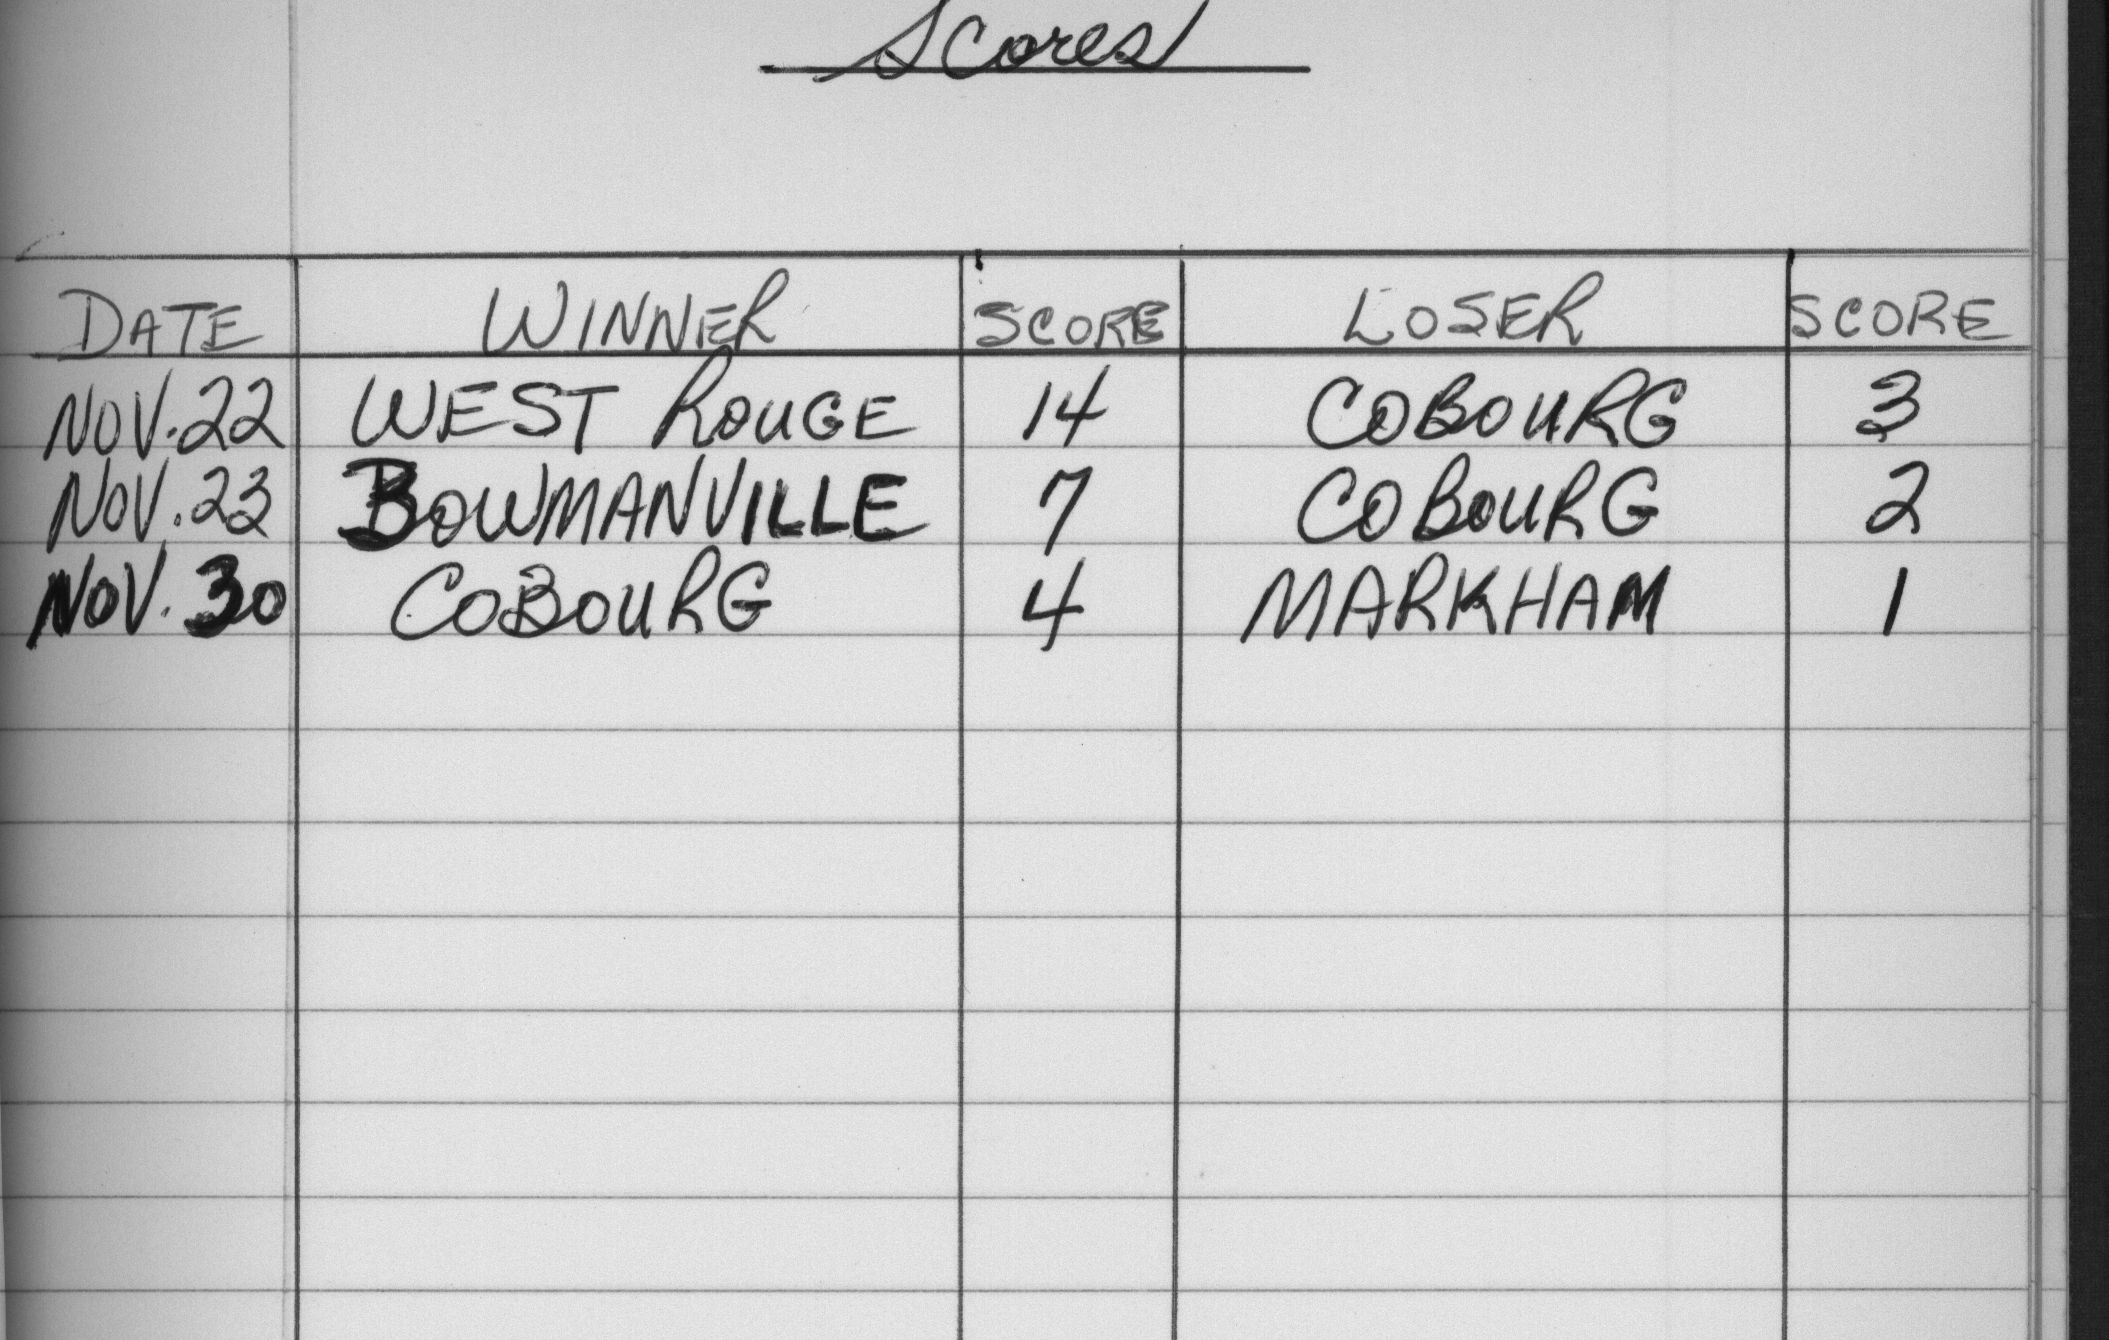 Scores
DATE WINNER SCORE LOSER SCORE
NOV. 22 WEST ROUGE 14 COBOURG 3
NOV. 23 BOWMANVILLE 7 COBOURG 2
NOV. 30 COBOURG 4 MARKHAM 1